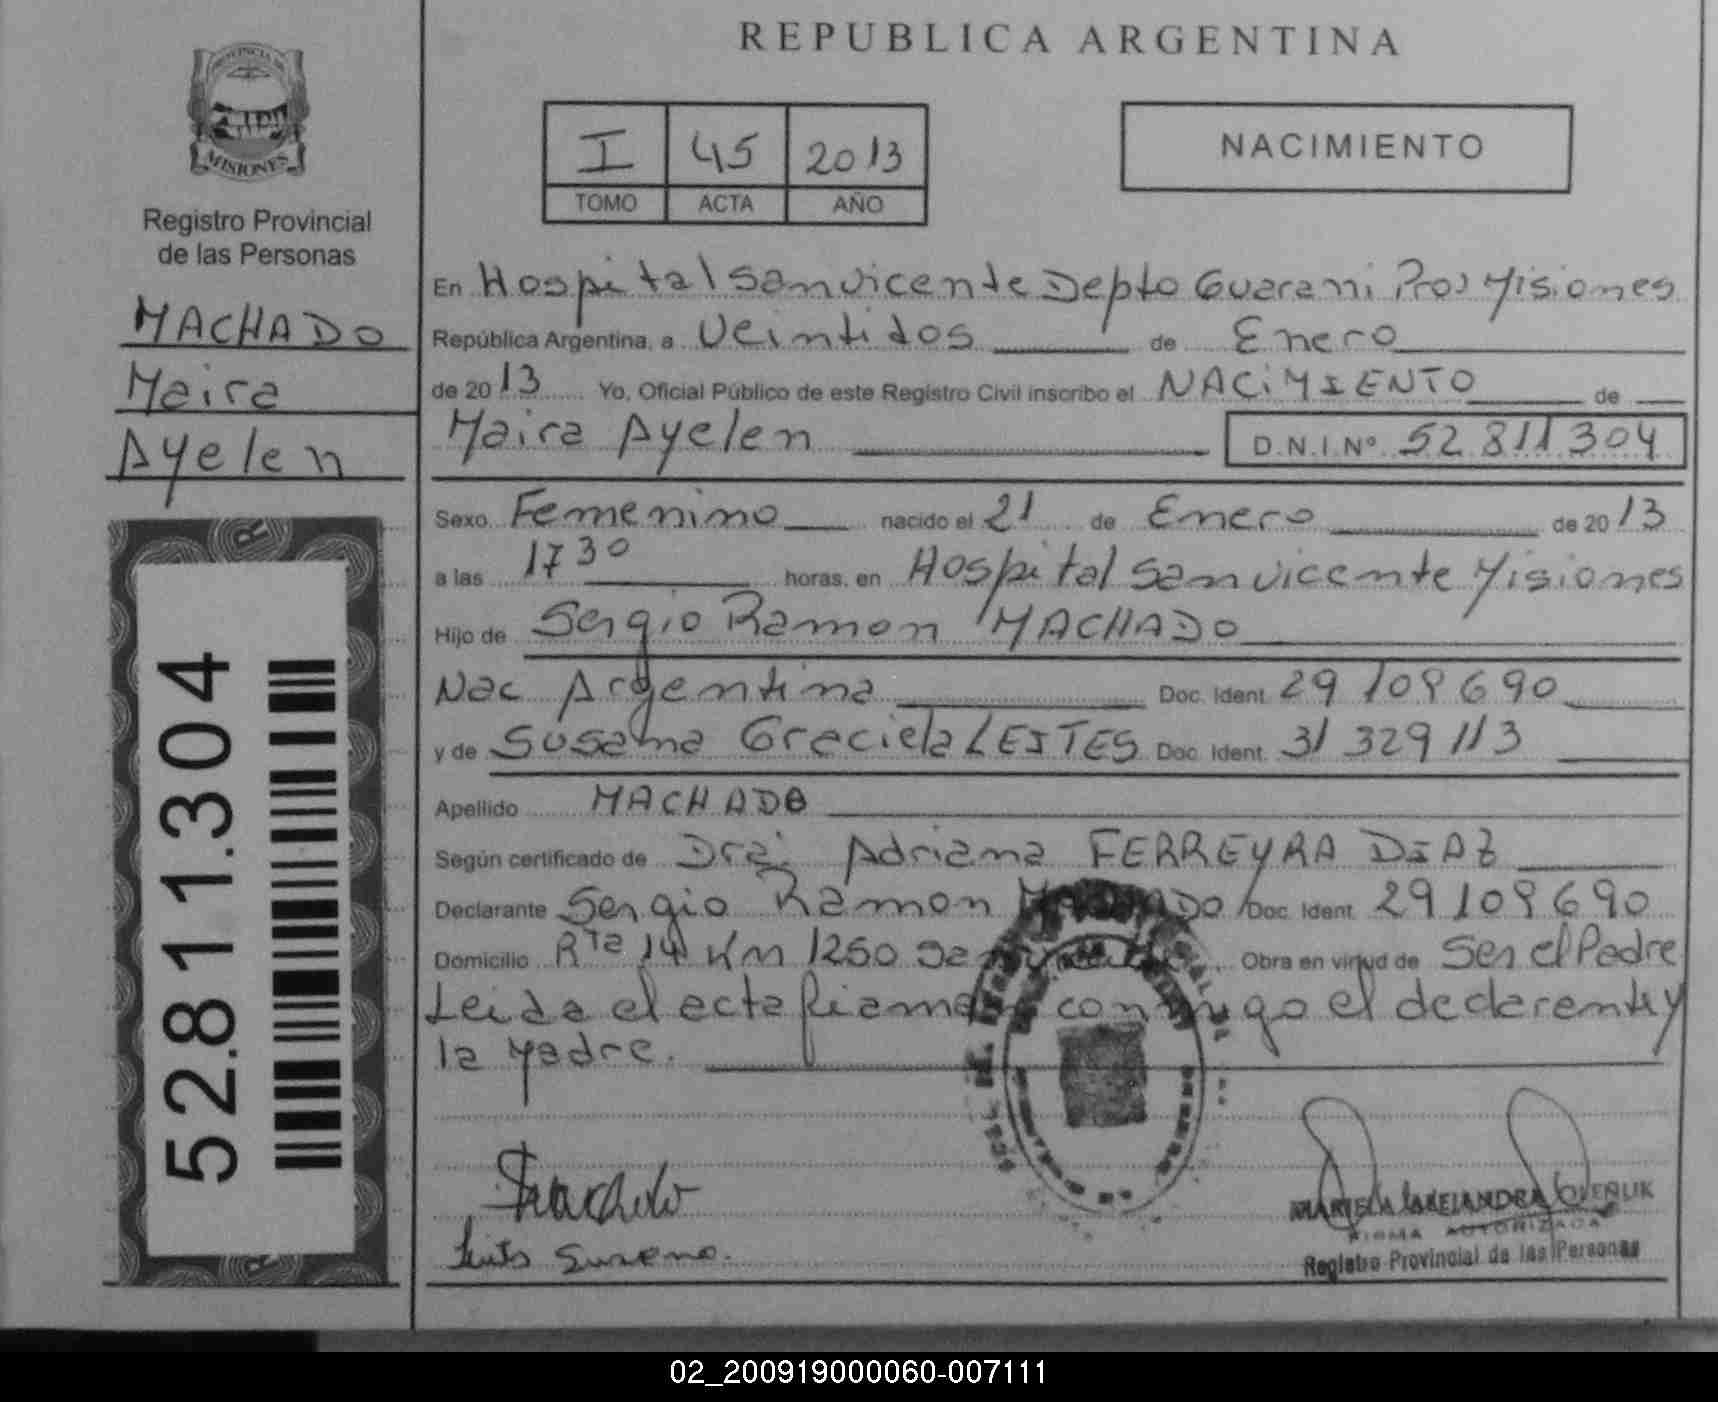 REPUBLICA ARGENTINA
PROVINCIA DE
MISIONES
Registro Provincial
de las Personas
MACHADO
Maira
Ayelen
52.811.304
I 45 2013
TOMO ACTA AÑO
NACIMIENTO
En Hospital San Vicente Depto Guarani Prov Misiones
República Argentina, a Veintidos de Enero
de 2013 Yo, Oficial Público de este Registro Civil inscribo el NACIMIENTO de
Maira Ayelen D.N.I.Nº 52 811 304
Sexo Femenino nacido el 21 de Enero de 2013
a las 17 30 horas, en Hospital San Vicente Misiones
Hijo de Sergio Ramon MACHADO
Nac Argentina Doc. Ident. 29 109 690
y de Susana Graciela LEITES Doc. Ident. 31 329 113
Apellido MACHADO
Según certificado de Dra. Adriana FERREYRA DIAZ
Declarante Sergio Ramon MACHADO Doc. Ident. 29 109 690
Domicilio Rta 14 Km 1250 San Vicente Obra en virtud de Ser el Padre
Leida el acta firman conmigo el declarente y
la Madre.
Machado
Leites Susana.
FIRMA AUTORIZADA
Registro Provincial de las Personas
02_200919000060-007111